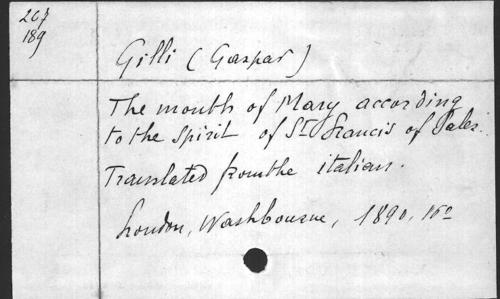 207
189
Gilli (Gaspar)
The month of Mary according
to the spirit of St Francis of Sales.
Translated from the italian.
London, Washbourne, 1890, 16º